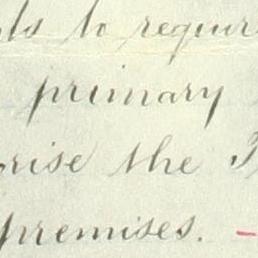 to requir
primary
rise the
premises.